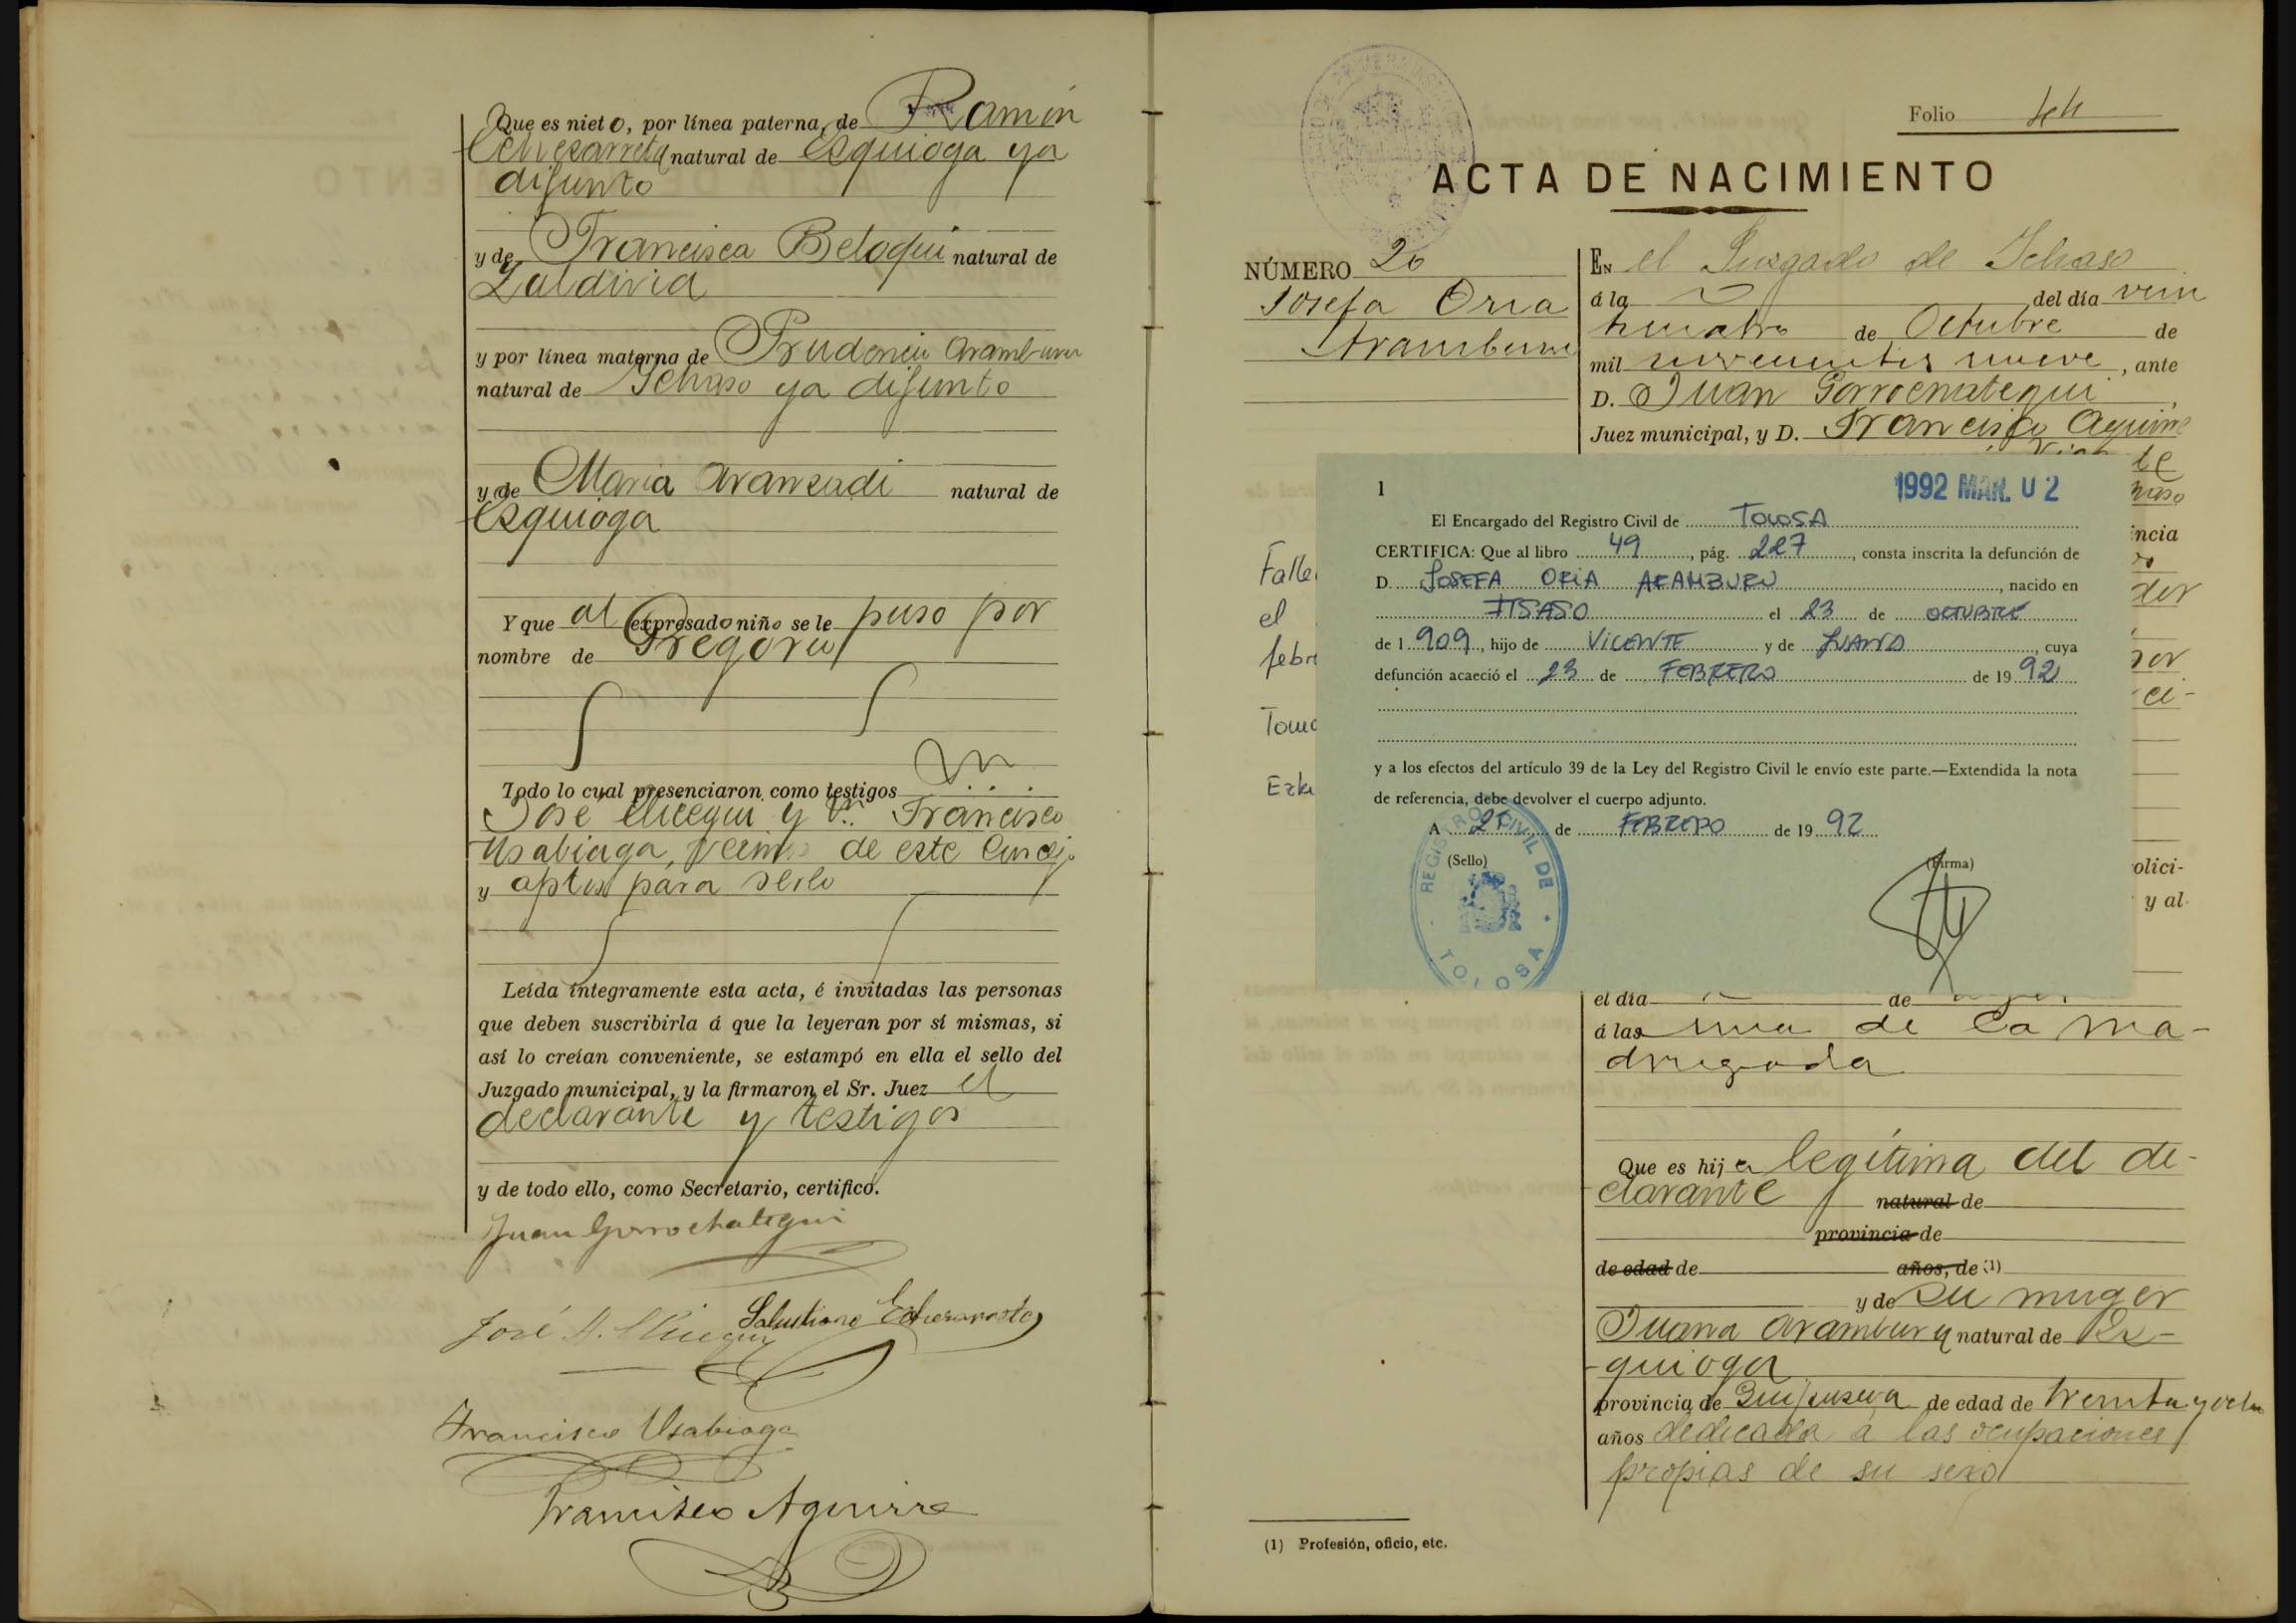 Que es nieto, por línea paterna, de Ramón
Echezarreta natural de Ezquioga ya
difunto
y de Francisca Beloqui natural de
Zaldivia
y por línea materna de Prudencio Aramburu
natural de Ichaso ya difunto
y de Maria Aranzadi natural de
Ezquioga
Y que al expresado niño se le puso por
nombre de Gregorio
Todo lo cual presenciaron como testigos
José y Dn. Francisco
Usabiaga, vecinos de este Concejo
y aptos para serlo
Leída íntegramente esta acta, é invitadas las personas
que deben suscribirla á que la leyeran por sí mismas, si
así lo creían conveniente, se estampó en ella el sello del
Juzgado municipal, y la firmaron el Sr. Juez el
declarante y testigos
y de todo ello, como Secretario, certifico.
Juan Gorrochategui
José A. Salustiano Echezarreta
Francisco Usabiaga
Francisco Aguirre
Folio 44
ACTA DE NACIMIENTO
NÚMERO 20
Josefa Oria
Aramburu
EN el Juzgado de Ichaso
á la del día vein
ticuatro de Octubre de
mil novecientos nueve, ante
D. Juan Gorrochategui,
Juez municipal, y D. Francisco Aguirre
1
1992 MAR. 02
El Encargado del Registro Civil de TOLOSA
CERTIFICA: Que al libro 49, pág. 227, consta inscrita la defunción de
D. JOSEFA ORIA ARAMBURU, nacido en
ITSASO el 23 de OCTUBRE
de 1 909, hijo de VICENTE y de JUANA, cuya
defunción acaeció el 23 de FEBRERO de 19 92
y a los efectos del artículo 39 de la Ley del Registro Civil le envío este parte.—Extendida la nota
de referencia, debe devolver el cuerpo adjunto.
A 27 de FEBRERO de 19 92
(Sello) (Firma)
REGISTRO CIVIL DE TOLOSA
Falle
el
febr
Tomo
Ezki
ncia
olici-
y al-
el día de
á las una de la ma-
drugada
Que es hija legítima del de-
clarante natural de
provincia de
de edad de años, de (1)
y de su muger
Juana Aramburu natural de Ez-
quioga
provincia de Guipuzcoa de edad de treinta y ocho
años dedicada á las ocupaciones
propias de su sexo
(1) Profesión, oficio, etc.